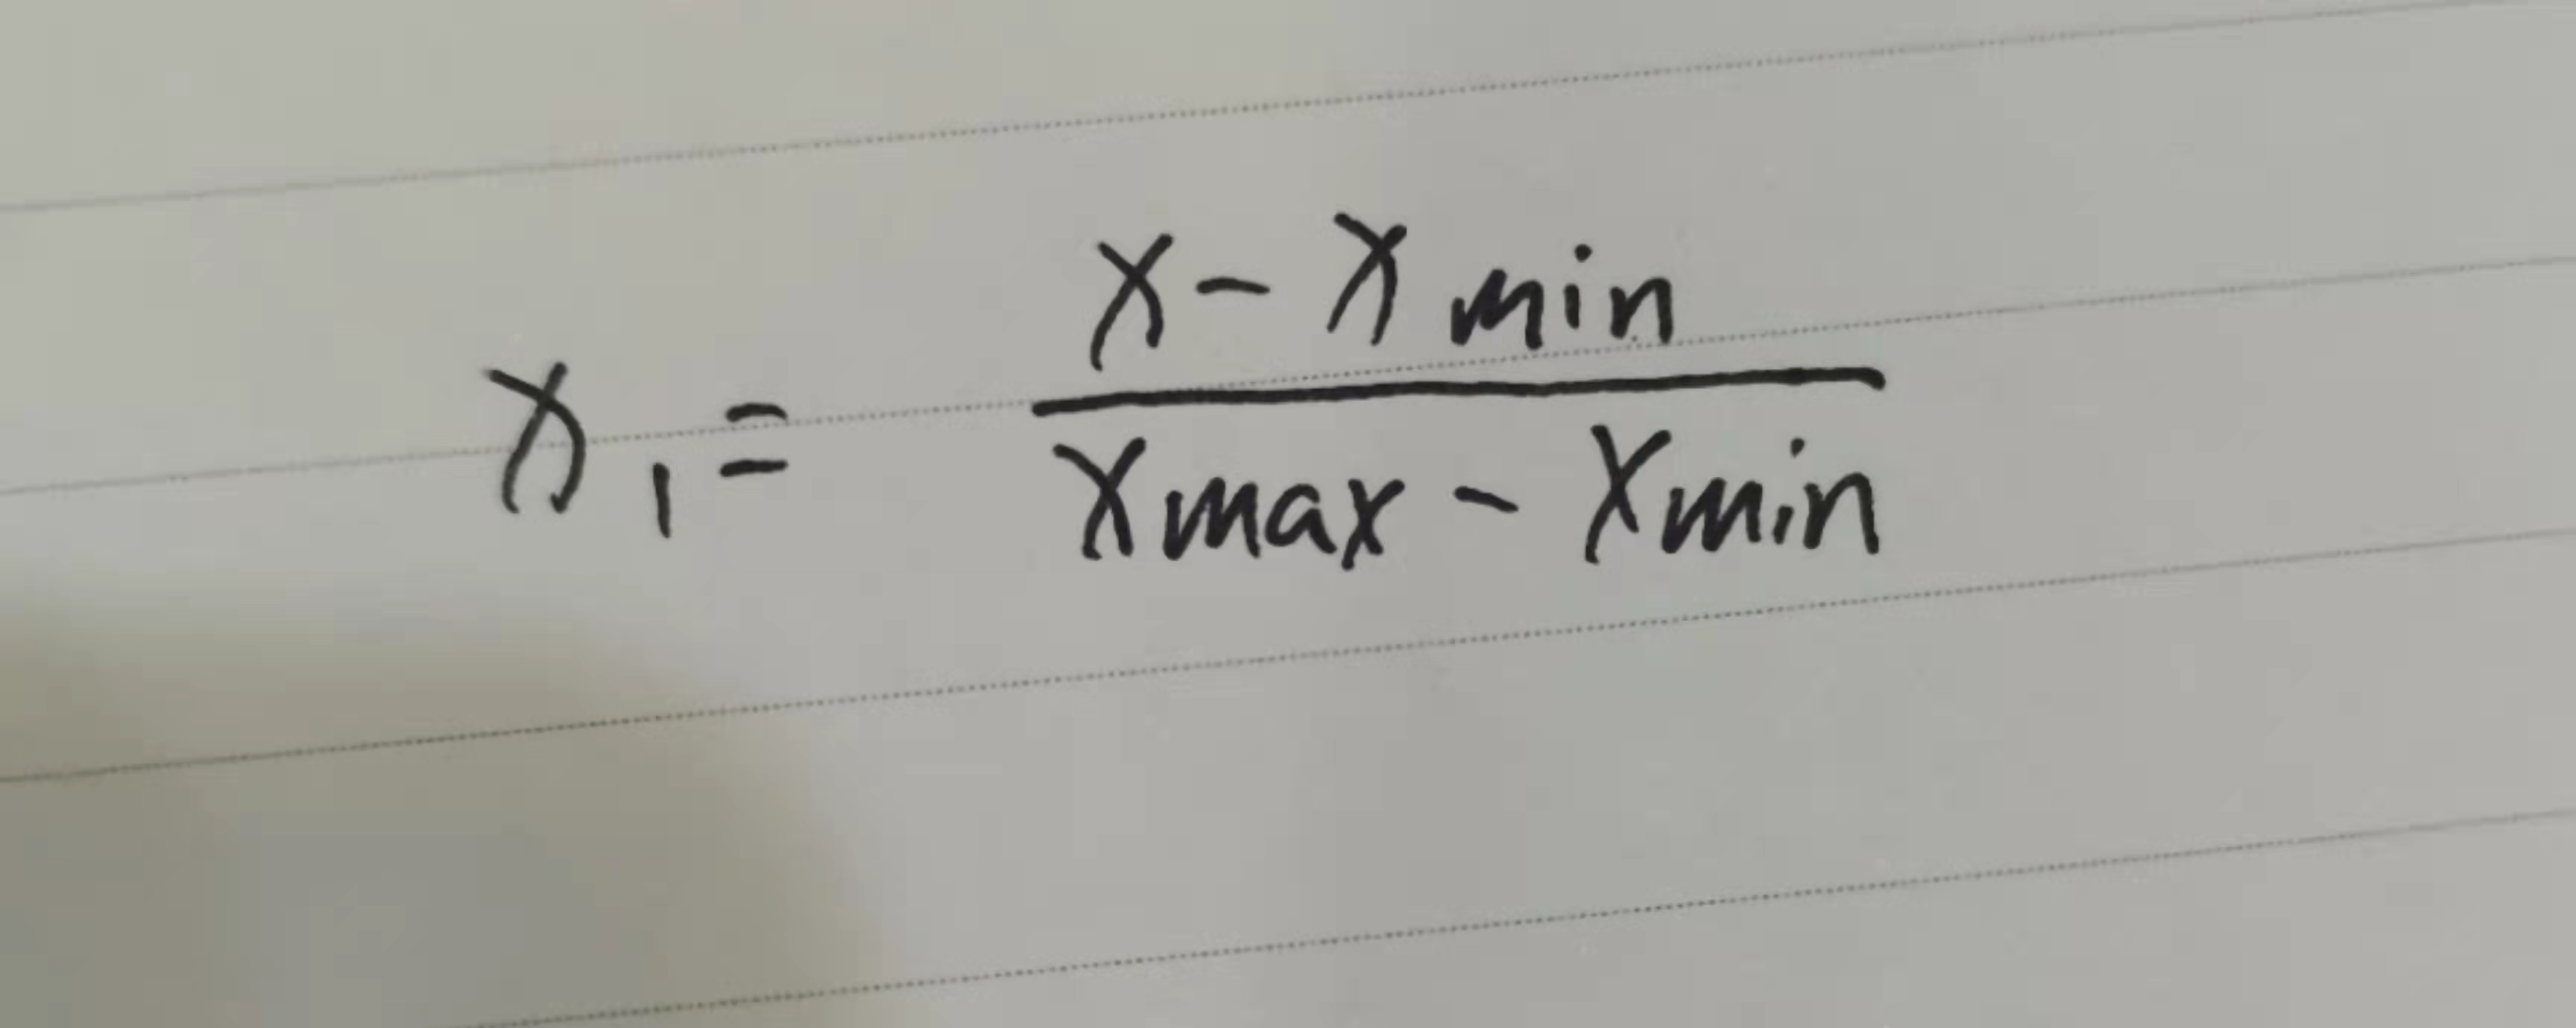 x₁ = (x - x min) / (x max - x min)